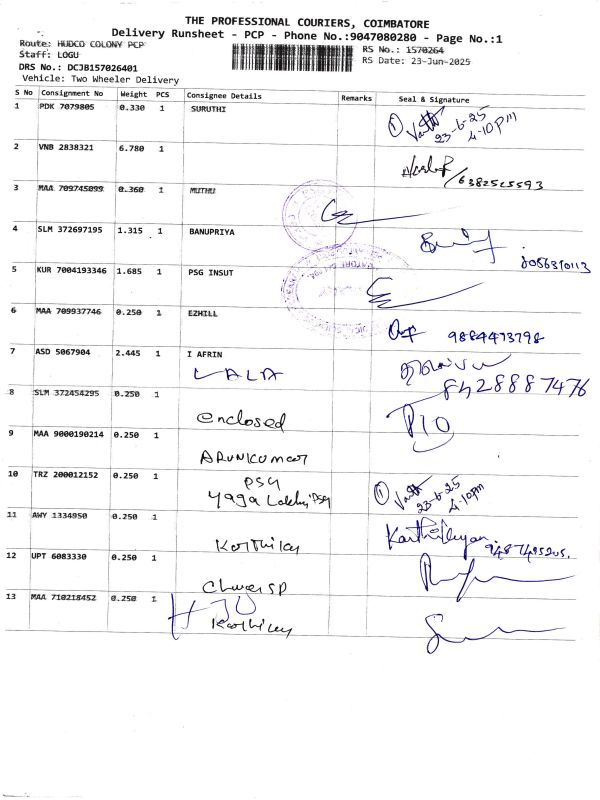 THE PROFESSIONAL COURIERS, COIMBATORE
Delivery Runsheet - PCP - Phone No.:9047080280 - Page No.:1
Route: HUDCO COLONY PCP RS No.: 1570264
Staff: LOGU RS Date: 23-Jun-2025
DRS No.: DCJB157026401
Vehicle: Two Wheeler Delivery
S No Consignment No Weight PCS Consignee Details Remarks Seal & Signature
1 PDK 7079805 0.330 1 SURUTHI
23-6-25
4-10pm
2 VNB 2838321 6.780 1
/6382525593
3 MAA 709745099 0.360 1 MUTHU
4 SLM 372697195 1.315 1 BANUPRIYA
8056310113
5 KUR 7004193346 1.685 1 PSG INSUT
6 MAA 709937746 0.250 1 EZHILL
9884473798
7 ASD 5067904 2.445 1 I AFRIN
LALA
8428887476
8 SLM 372454295 0.250 1
enclosed
9 MAA 9000190214 0.250 1
ARUNKUMAR
10 TRZ 200012152 0.250 1 PSG
23-6-25
4-10pm
11 AWY 1334950 0.250 1
Karthikeyan
12 UPT 6083330 0.250 1
13 MAA 710218452 0.250 1